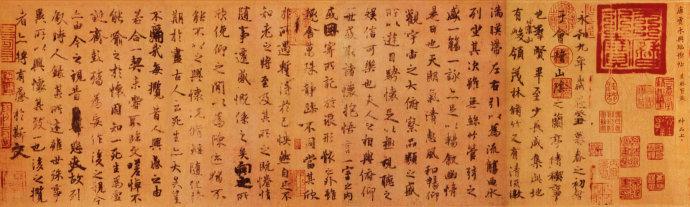 唐虞永興臨禊帖
永和九年歲在癸丑暮春之初會
于會稽山陰之蘭亭脩禊事
也羣賢畢至少長咸集此地
有峻領茂林脩竹又有清流激
湍暎帶左右引以為流觴曲水
列坐其次雖無絲竹管弦之
盛一觴一詠亦足以暢敘幽情
是日也天朗氣清惠風和暢仰
觀宇宙之大俯察品類之盛
所以遊目騁懷足以極視聽之
娛信可樂也夫人之相與俯仰
一世或取諸懷抱悟言一室之內
或因寄所託放浪形骸之外雖
趣舍萬殊靜躁不同當其欣
於所遇暫得於己怏然自足不
知老之將至及其所之既惓情
隨事遷感慨係之矣向之所
欣俛仰之閒以為陳迹猶不
能不以之興懷況脩短隨化終
期於盡古人云死生亦大矣豈
不痛哉每攬昔人興感之由
若合一契未嘗不臨文嗟悼不
能喻之於懷固知一死生為虛
誕齊彭殤為妄作後之視今
亦由今之視昔悲夫故列
敘時人錄其所述雖世殊事
異所以興懷其致一也後之攬
者亦將有感於斯文